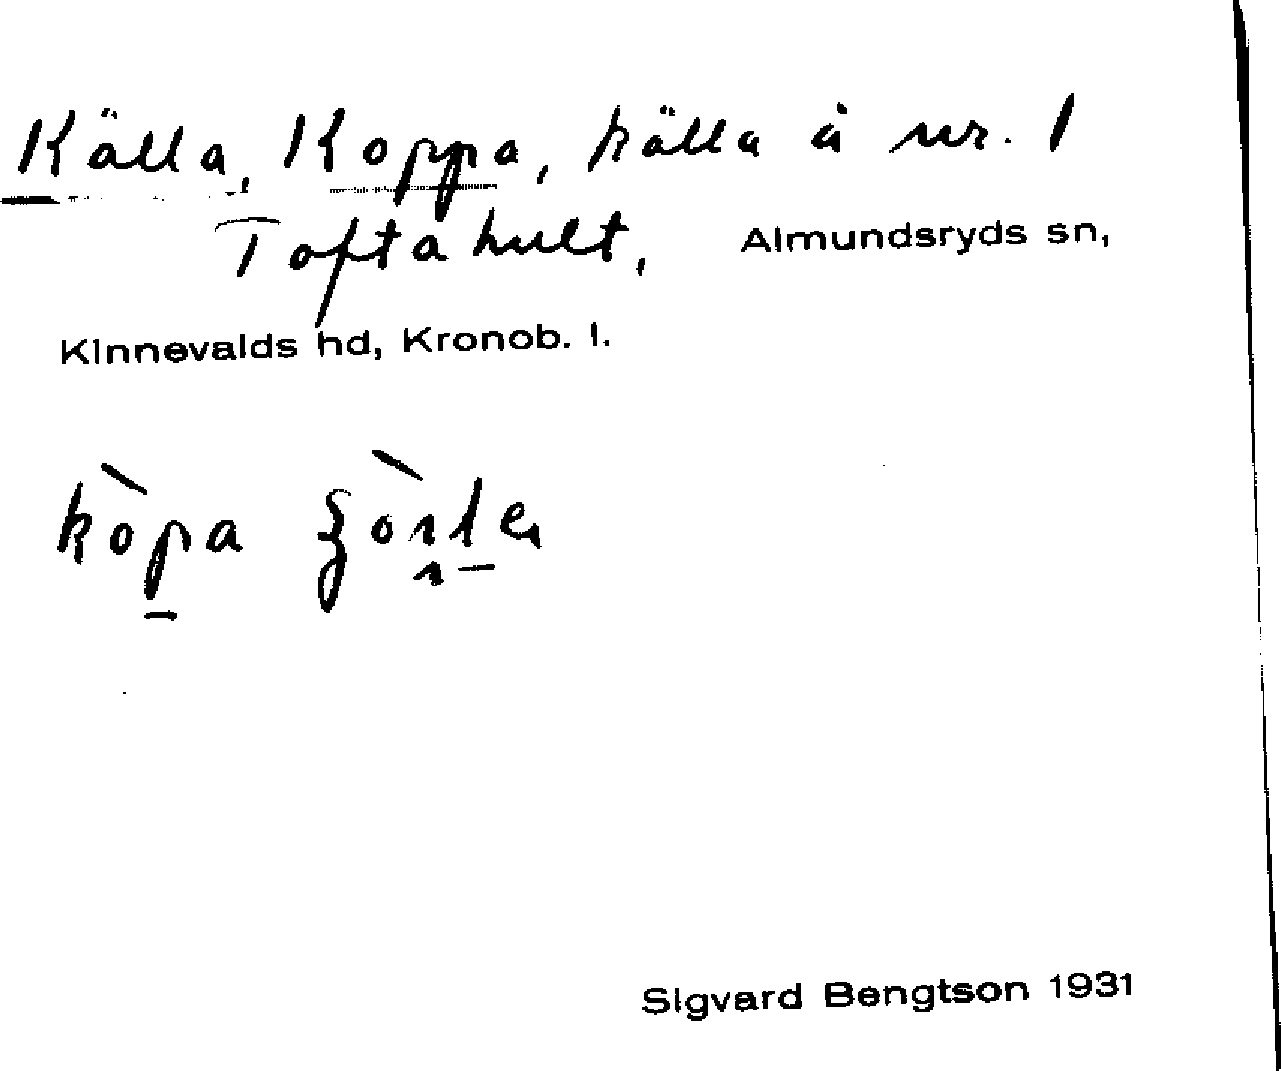 Källa, Koppa, källa å nr. 1
Toftahult, Almundsryds sn,
Kinnevalds hd, Kronob. l.
kòpa
Sigvard Bengtson 1931